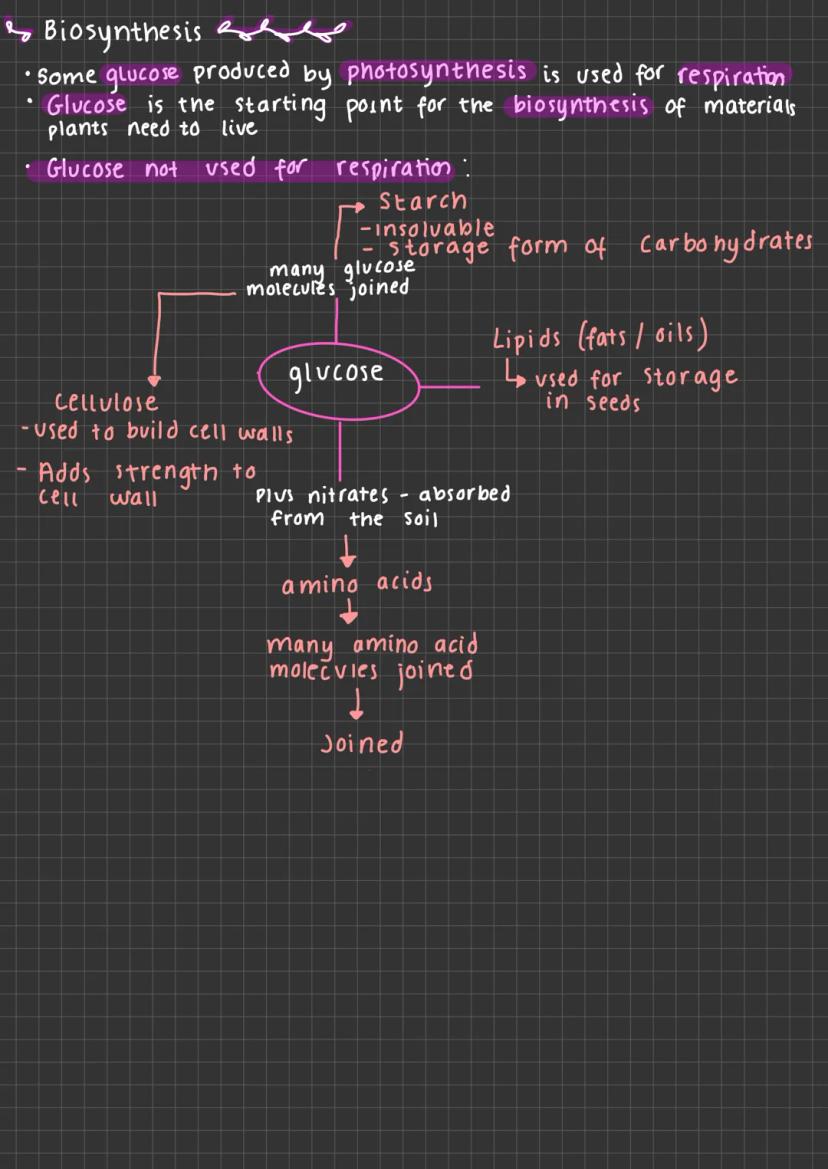 Biosynthesis
• some glucose produced by photosynthesis is used for respiration
• Glucose is the starting point for the biosynthesis of materials
plants need to live
• Glucose not used for respiration :
Starch
- insolvable
- storage form of Carbohydrates
many glucose
molecules joined
Lipids (fats / oils)
used for storage
in seeds
glucose
Cellulose
- used to build cell walls
- Adds strength to
cell wall
Plus nitrates - absorbed
from the soil
amino acids
many amino acid
molecules joined
Joined